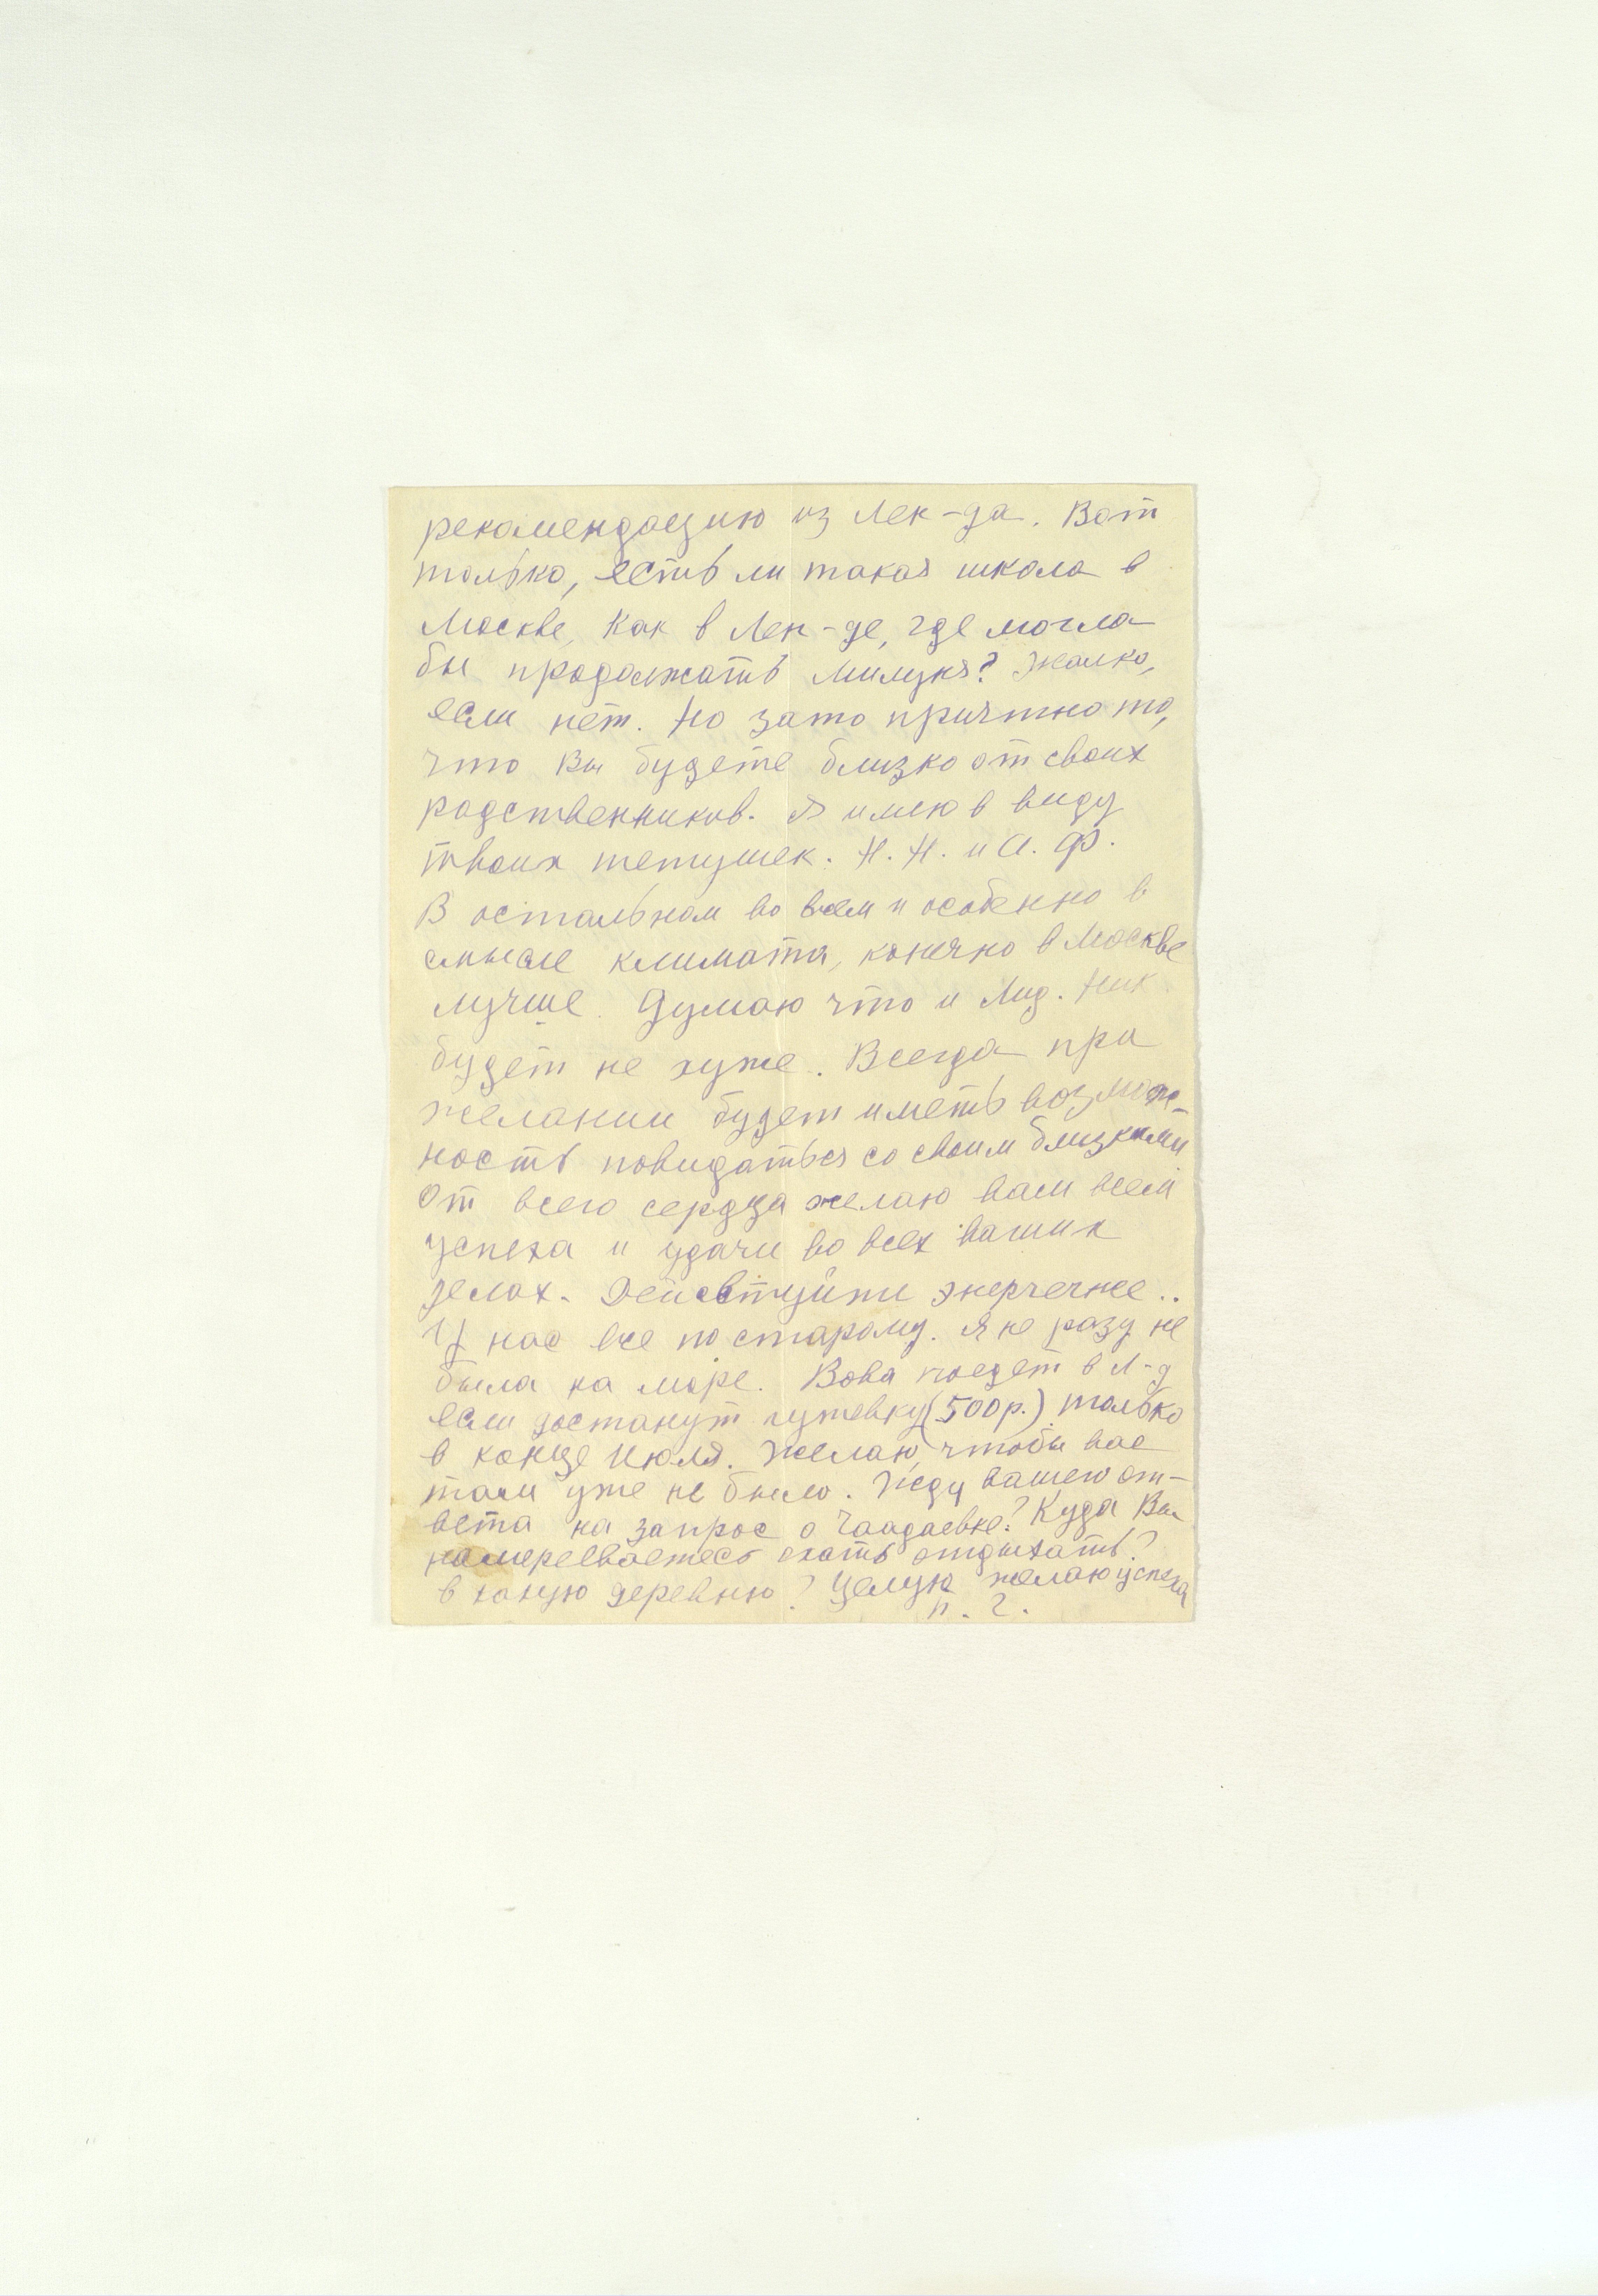 рекомендацию из Лен-да. Вот
только, есть ли такая школа в
Москве, как в Лен-де, где могла
бы продолжать Милуня? Жалко,
если нет. Но зато приятно то,
что Вы будете близко от своих
родственников. Я имею в виду
твоих тетушек. Н. Н. и А. Ф.
В остальном во всем и особенно в
смысле климата, конечно в Москве
лучше. Думаю что и Лид. Ник.
будет не хуже. Всегда при
желании будет иметь возмож-
ность повидаться со своим близкими
От всего сердца желаю вам всем
успеха и удачи во всех ваших
делах. Действуйте энергечнее..
У нас все по старому. Я не разу не
была на море. Вова поедет в Л-д
если достанут путевку (500 р.) только
в конце Июля. Желаю, чтобы вас
там уже не было. Жду вашего от-
вета на запрос о Чаадаевке? Куда Вы
намереваетесь ехать отдыхать?
в какую деревню? Целую желаю успеха